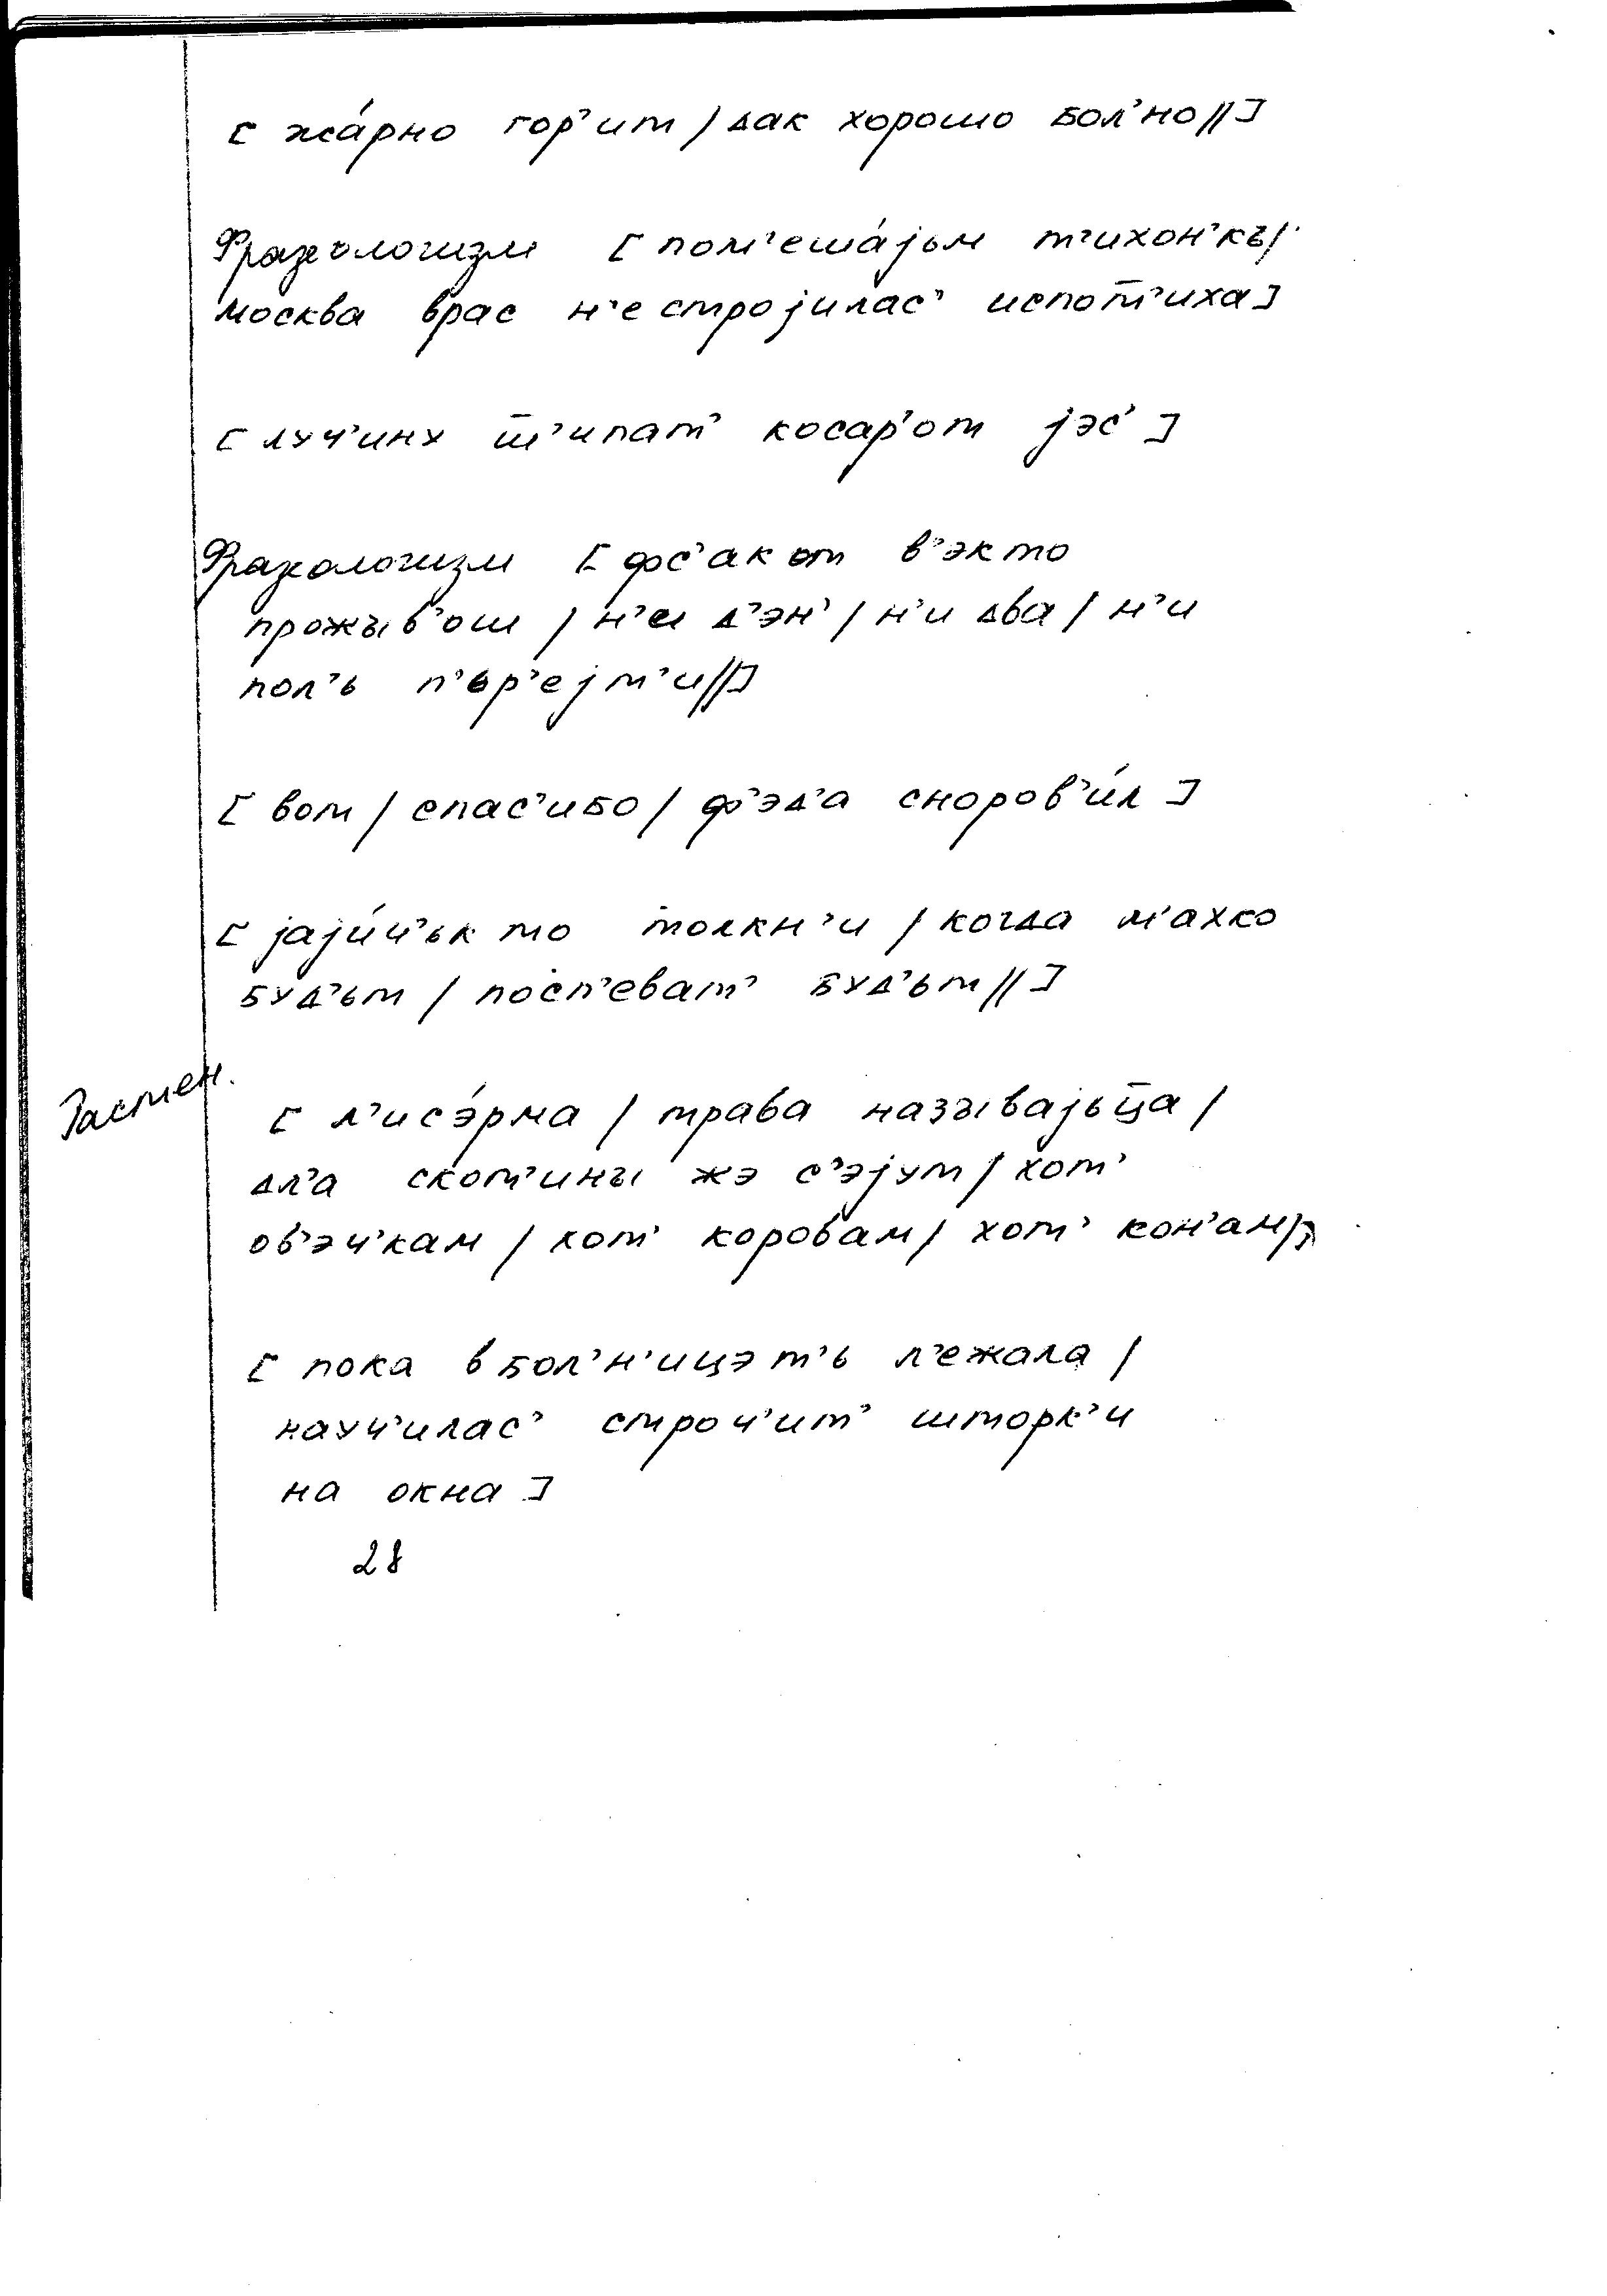 [ жа́рно гор'ит / дак хорошо бол'но // ]
Фразеологизм [ пом'еша́јьм т'ихон'къ /
москва врас н'е стројилас' испот̄'иха ]
[ луч'ину ш̄'ипат' косар'от јэс' ]
Фразеологизм [ фс'ак от в'эк то
прожыв'ош / н'и д'эн' / н'и два / н'и
пол'ь п'ьр'ејт'и // ]
[ вот / спас'ибо / ф'эд'а сноров'и́л ]
[ јаји́ч'ьк то толкн'и / когда м'ахко
буд'ьт / посп'еват' буд'ьт // ]
Растен.
[ л'исэ́рма / трава называјьц̄а /
дл'а скот'ины жэ с'эјут / хот'
ов'эч'кам / хот' коровам / хот' кон'ам / ]
[ пока в бол'н'ицэ т'ь л'ежала /
науч'илас' строч'ит' шторк'и
на окна ]
28